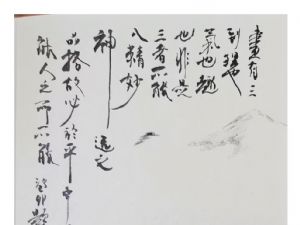 畫有三
到理也
氣也趣
也非是
三者不能
入精妙
神逸之
故必於平中
能人之所不能